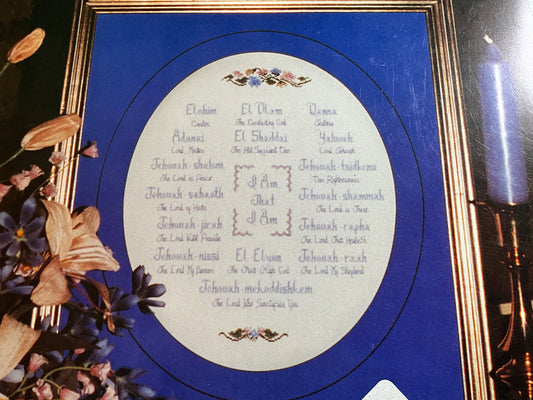 Elohim El Olam Qanna
Creator The Everlasting God Jealous
Adonai El Shaddai Yahweh
Lord, Master The All Sufficient One Lord, Jehovah
Jehovah-shalom Jehovah-tsidkenu
The Lord is Peace Our Righteousness
I Am
Jehovah-sabaoth Jehovah-shammah
The Lord of Hosts That The Lord is There
I Am
Jehovah-jirah Jehovah-rapha
The Lord Will Provide The Lord That Healeth
Jehovah-nissi El Elyon Jehovah-raah
The Lord My Banner The Most High God The Lord My Shepherd
Jehovah-mekoddishkem
The Lord Who Sanctifies You